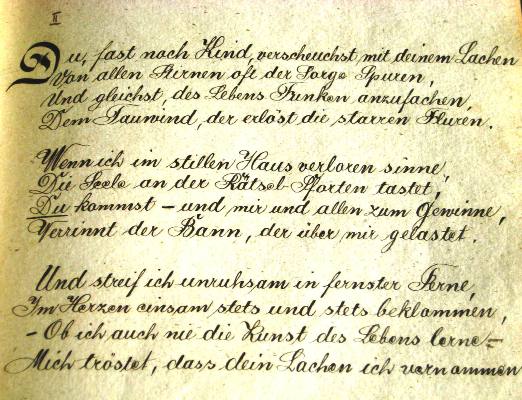 II
Du, fast noch Kind, verscheuchst mit deinem Lachen
Von allen Stirnen oft der Sorge Spuren,
Und gleichst, des Lebens Funken anzufachen,
Dem Tauwind, der erlöst die starren Fluren.
Wenn ich im stillen Haus verloren sinne,
Die Seele an der Rätsel-Pforten tastet,
Du kommst – und mir und allen zum Gewinne,
Verrinnt der Bann, der über mir gelastet.
Und streif ich unruhsam in fernster Ferne,
Im Herzen einsam stets und stets beklommen,
– Ob ich auch nie die Kunst des Lebens lerne –
Mich tröstet, dass dein Lachen ich vernommen